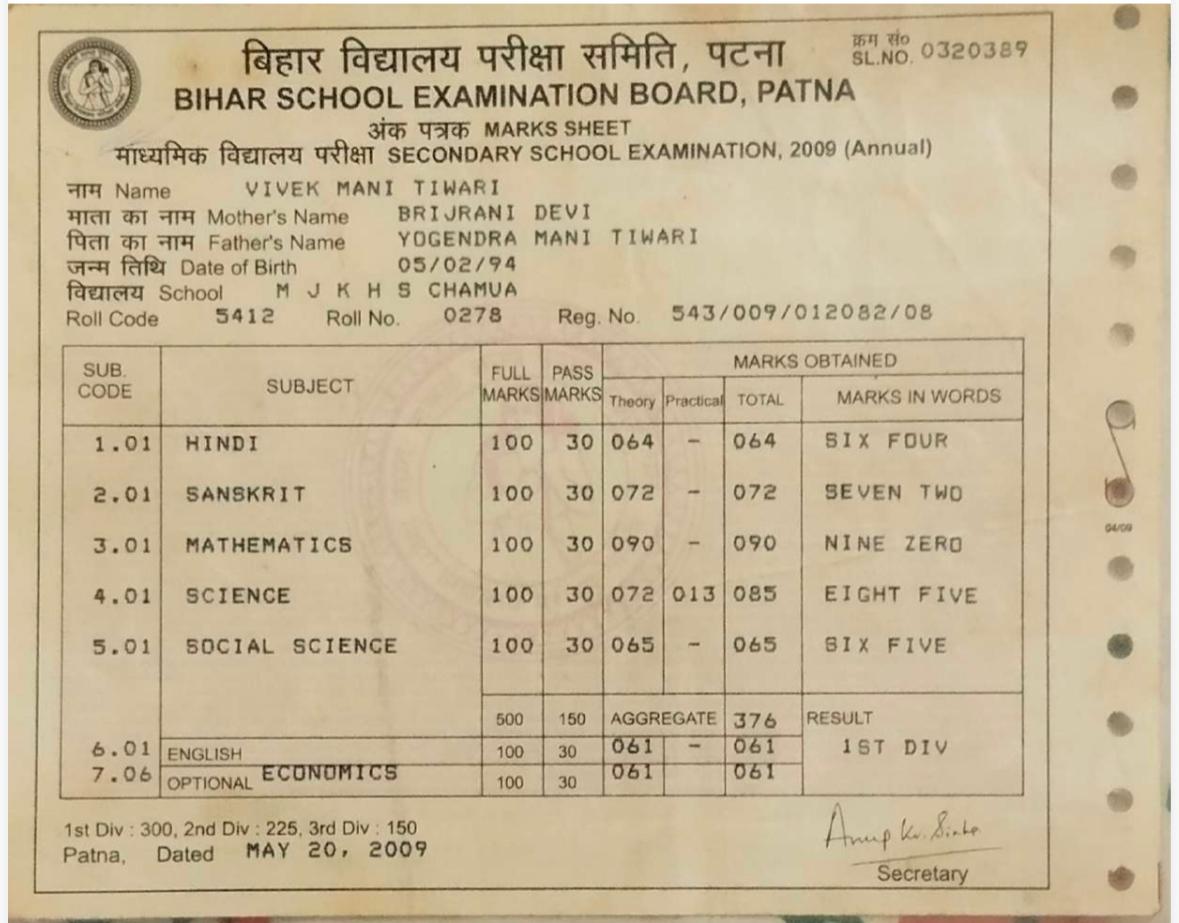 बिहार विद्यालय परीक्षा समिति, पटना
क्रम सं०
SL.NO. 0320389
BIHAR SCHOOL EXAMINATION BOARD, PATNA
अंक पत्रक MARKS SHEET
माध्यमिक विद्यालय परीक्षा SECONDARY SCHOOL EXAMINATION, 2009 (Annual)
नाम Name VIVEK MANI TIWARI
माता का नाम Mother's Name BRIJRANI DEVI
पिता का नाम Father's Name YOGENDRA MANI TIWARI
जन्म तिथि Date of Birth 05/02/94
विद्यालय School M J K H S CHAMUA
Roll Code 5412 Roll No. 0278 Reg. No. 543/009/012082/08
SUB. CODE SUBJECT FULL MARKS PASS MARKS MARKS OBTAINED
Theory Practical TOTAL MARKS IN WORDS
1.01 HINDI 100 30 064 - 064 SIX FOUR
2.01 SANSKRIT 100 30 072 - 072 SEVEN TWO
3.01 MATHEMATICS 100 30 090 - 090 NINE ZERO
4.01 SCIENCE 100 30 072 013 085 EIGHT FIVE
5.01 SOCIAL SCIENCE 100 30 065 - 065 SIX FIVE
500 150 AGGREGATE 376 RESULT
6.01 ENGLISH 100 30 061 - 061 1ST DIV
7.06 OPTIONAL ECONOMICS 100 30 061 061
04/09
1st Div : 300, 2nd Div : 225, 3rd Div : 150
Patna, Dated MAY 20, 2009
Anup Kr. Sinha
Secretary